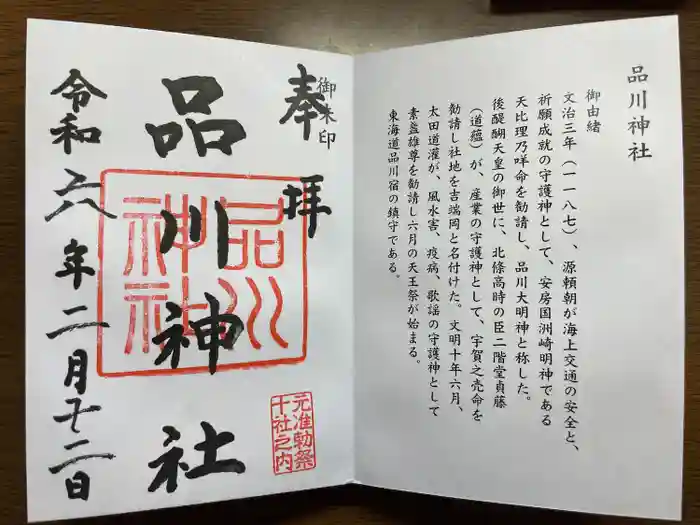 品川神社
御由緒
文治三年(一一八七)、源頼朝が海上交通の安全と、
祈願成就の守護神として、安房国洲崎明神である
天比理乃咩命を勧請し、品川大明神と称した。
後醍醐天皇の御世に、北條高時の臣二階堂貞藤
(道蘊)が、産業の守護神として、宇賀之売命を
勧請し社地を吉端岡と名付けた。文明十年六月、
太田道灌が、風水害、疫病、歌謡の守護神として
素盞雄尊を勧請し六月の天王祭が始まる。
東海道品川宿の鎮守である。
御朱印
奉拝
品川神社
品川神社
元准勅祭
十社之内
令和六年二月十二日